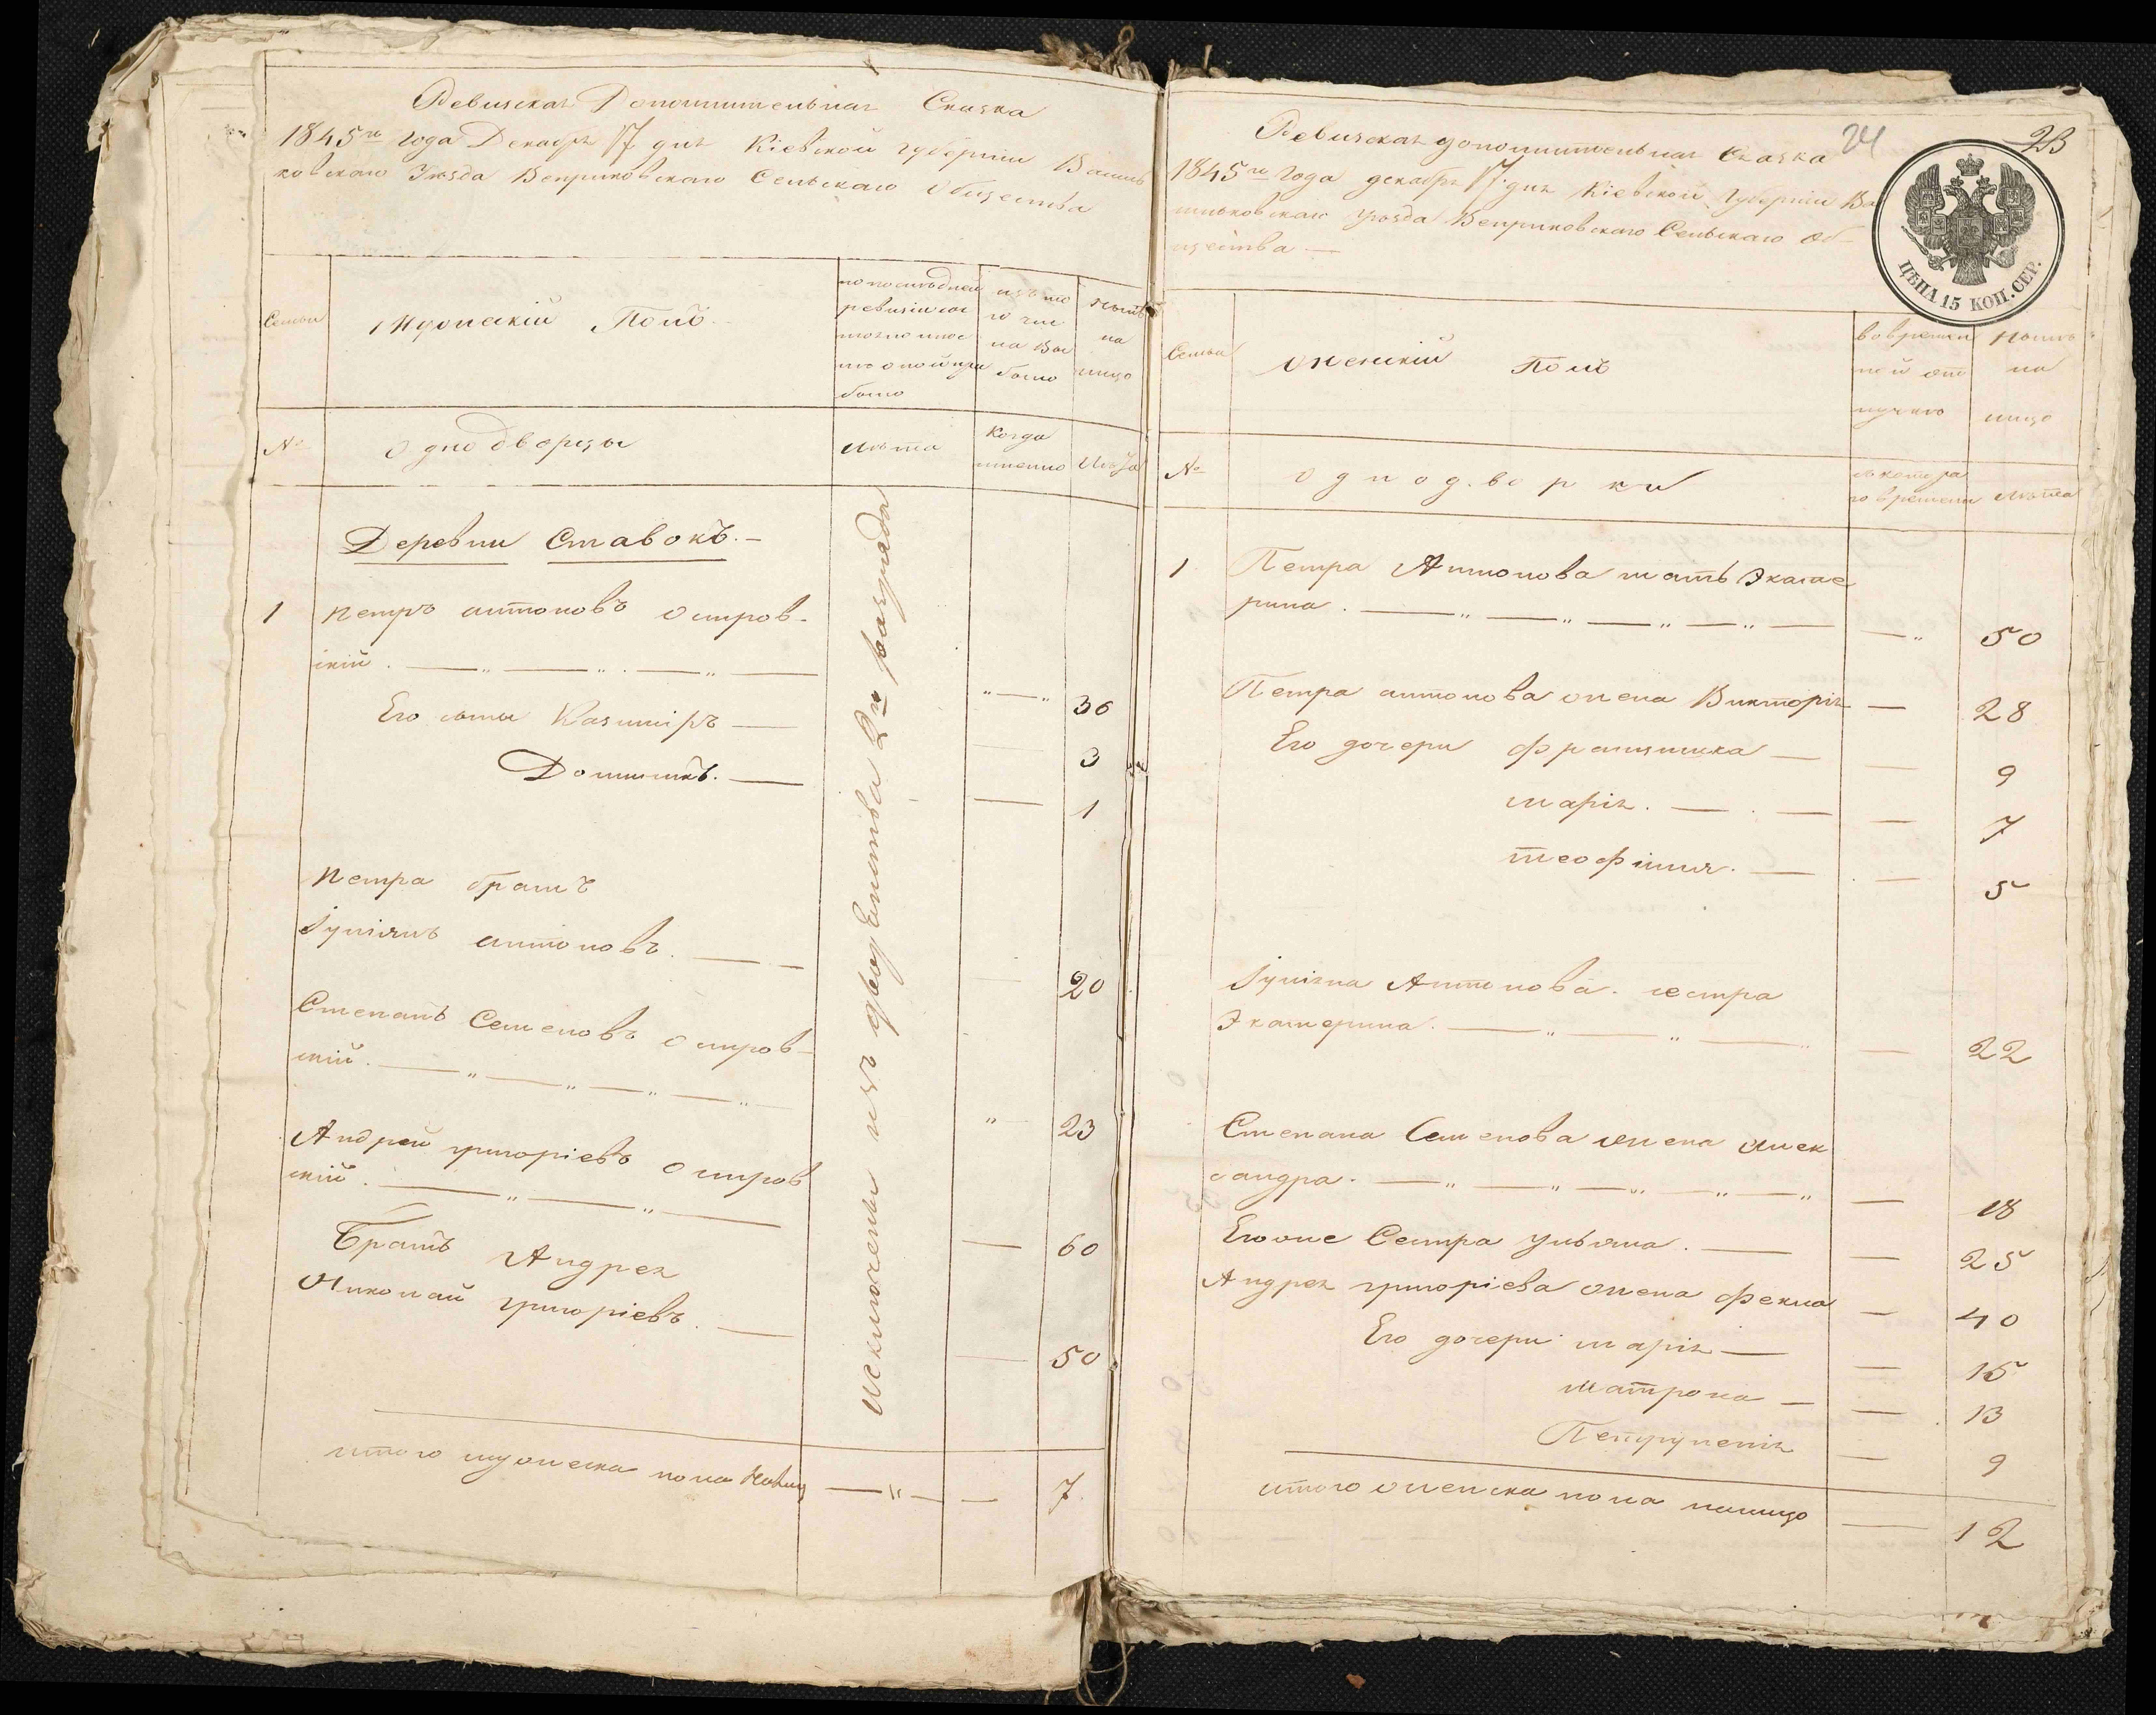 Ревизская Дополнительная Сказка
1845го года Декабря 17 дня Кіевской губерніи Василь
ковскаго Уѣзда Веприковскаго Сельскаго Общества
Семьи
Мужескій Полъ.
по послѣдней
ревизіи сос
было
изъ то
го чис
ла Вы
было
Нынѣ
на
лицо
№
Однодворцы
Лѣта
Когда
именно
Лѣта
Деревни Ставокъ.—
1
Петръ антоновъ Остров-
скій.
36
Его сыны Казимиръ —
3
Доминикъ. —
1
Петра братъ
Іуліянъ антоновъ. —
20
Степанъ Семеновъ Остров-
скій.
23
Андрей григоріевъ Остров
скій.
60
Братъ Андрея
Николай григоріевъ. —
50
Исключены изъ дворянства 2го разряда
итого мужеска пола Налиц — " — — 7.
24
23
Ревизская дополнительная Сказка
1845го года декабря 17 дня Кіевской Губерніи Ва
сильковскаго уѣзда Веприковскаго Сельскаго Об-
щества —
ЦѢНА 15 КОП. СЕР.
Семьи
Женскій Полъ
во времен
ной от
лучкѣ
Нынѣ
на
лицо
№
Однодворки
съ котора
го времени
Лѣта
1.
Петра Антонова мать Экате
рина.
50
Петра антонова жена Викторія — 28
Его дочери Францишка — — 9
Марія. — — 7
Теофилия. — — 5
Іуліяна Антонова. сестра
Экатерина.
22
Степана Семенова жена Алек
сандра.
18
Егоже Сестра Ульяна. — — 25
Андрея григоріева жена Фекла — 40
Его дочери Марія — — 15
Матрона — — 13
Петрунелія — 9
итого женска пола налицо — 12